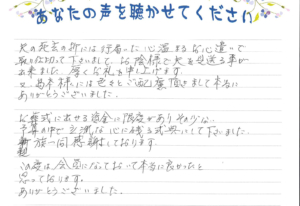 あなたの声を聴かせてください
夫の死去の折には行届いた心温まるお心遣いで
取り仕切って下さいまして、お陰様で夫を見送る事が
出来ました。厚くお礼を申し上げます。
又、島本様には色々とご配慮頂きまして本当に
ありがとうございました。
お葬式に出せる資金に限度がありその少ない
予算の中で立派な心に残る式にして下さいました。
親族一同感謝しております。
此度は会員になっておいて本当に良かったと
思っております。
ありがとうございました。